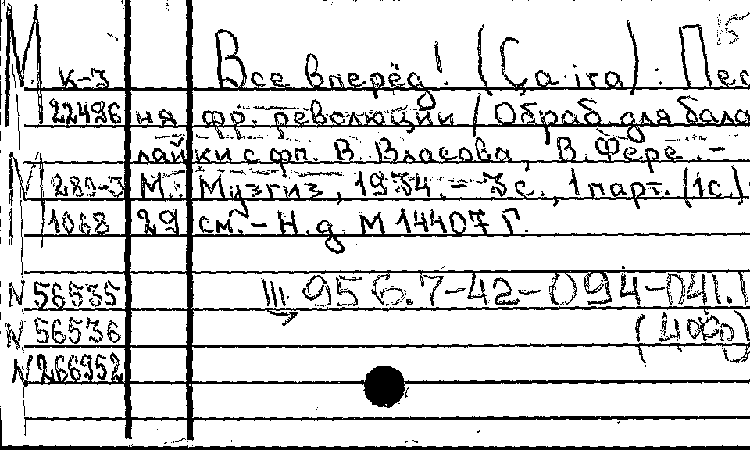 М К-3 Все вперёд! (Ça ira): Пес
22496 ня фр. революции / Обраб. для бала
лайки с фп. В. Власова, В. Фере. –
М 289-3 М.: Музгиз, 1934. – 3 с., 1 парт. (1с.)
1068 29 см. – Н. д. М 14407 Г.
N 56535 III 956.7-42-094-041.1
N 56536 (4000)
N 266952